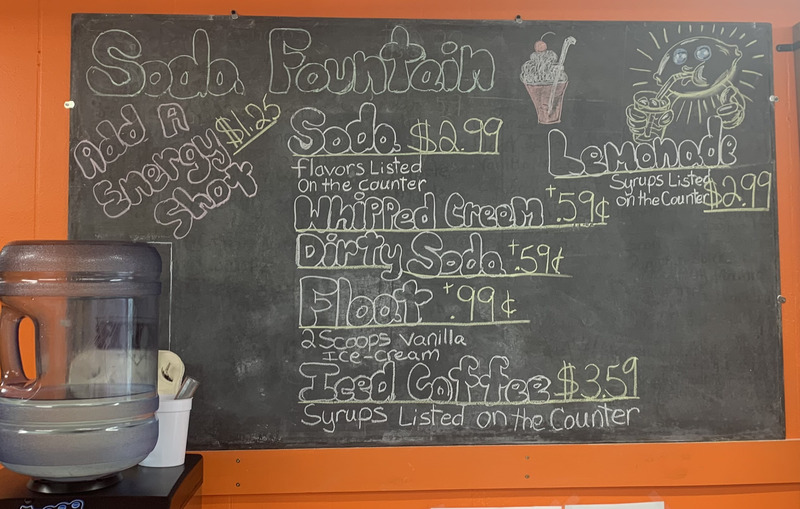 Soda Fountain
Add A $1.25
Energy
Shot
Soda $2.99
flavors Listed
On the Counter
Whipped Cream +.59¢
Dirty Soda +.59¢
Float +.99¢
2 Scoops Vanilla
Ice-cream
Iced Coffee $3.59
Syrups Listed on the Counter
Lemonade
Syrups Listed $2.99
on the Counter